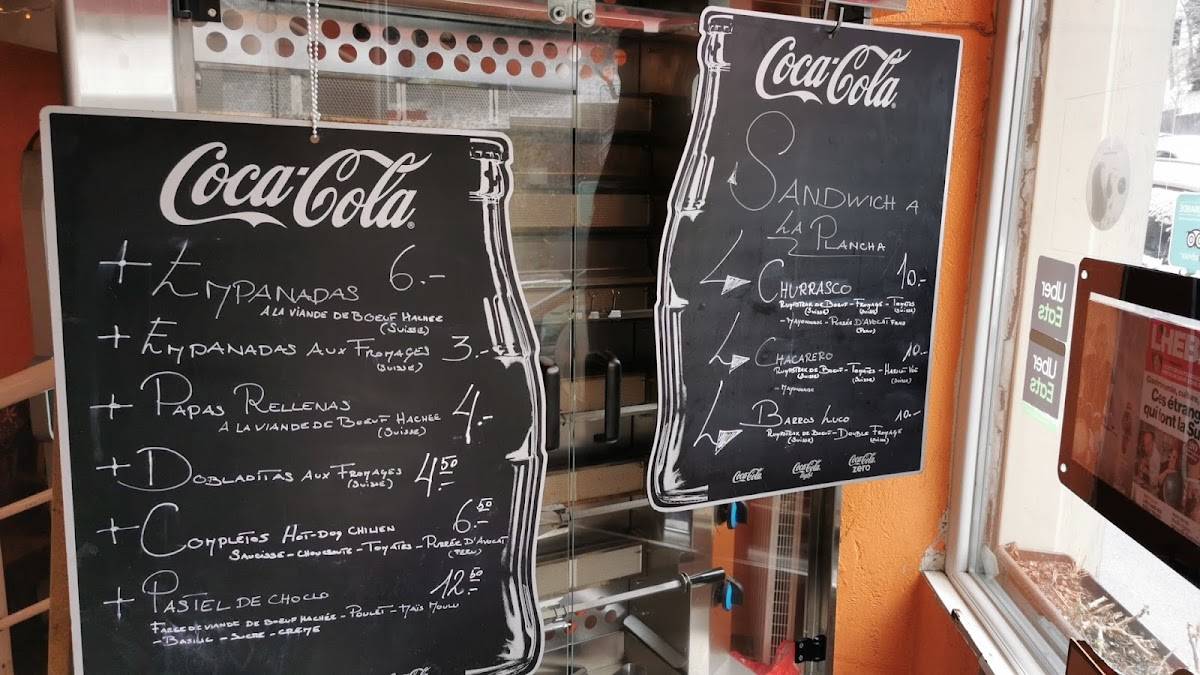 Coca-Cola
+ Empanadas 6.-
a la viande de boeuf hachée
(Suisse)
+ Empanadas aux fromages 3.-
(Suisse)
+ Papas Rellenas 4.-
a la viande de boeuf hachée
(Suisse)
+ Dobladitas aux fromages 4.50
(Suisse)
+ Complétos Hot-Dog Chilien 6.50
Saucisse - Choucroute - Tomates - Purée d'avocat
(Peru)
+ Pastel de Choclo 12.50
Farce de viande de boeuf hachée - Poulet - Maïs moulu
- Basilic - Sucre - Creme
Coca-Cola
Coca-Cola
Sandwich a
la Plancha
Churrasco 10.-
Rumpsteak de boeuf - Fromage - Tomates
(Suisse) (Suisse) (Suisse)
- Mayonnaise - Purée d'avocat
(Perou)
Chacarero 10.-
Rumpsteak de boeuf - Tomates - Haricot
(Suisse) (Suisse) (Suisse)
- Mayonnaise
Barros Luco 10.-
Rumpsteak de boeuf - Double Fromage
(Suisse) (Suisse)
Coca-Cola
Coca-Cola light
Coca-Cola zero
Uber
Eats
Uber
Eats
L'HEB
Ces étran
qui font la S